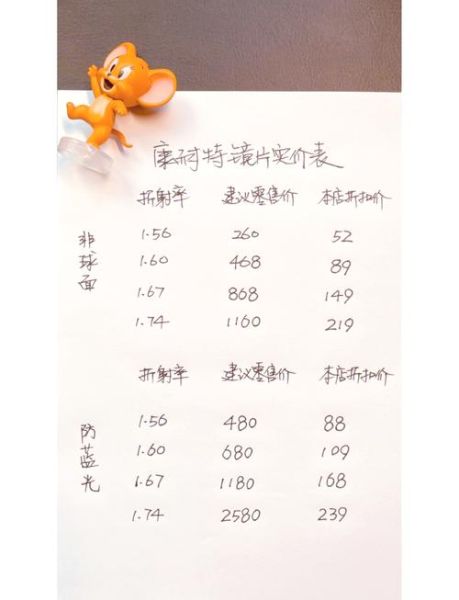 康耐特镜片实价表
折射率 建议零售价 本店折扣价
非球面
1.56 260 52
1.60 468 89
1.67 868 149
1.74 1160 219
折射率 建议零售价 本店折扣价
防蓝光
1.56 480 88
1.60 680 109
1.67 1180 168
1.74 2580 239